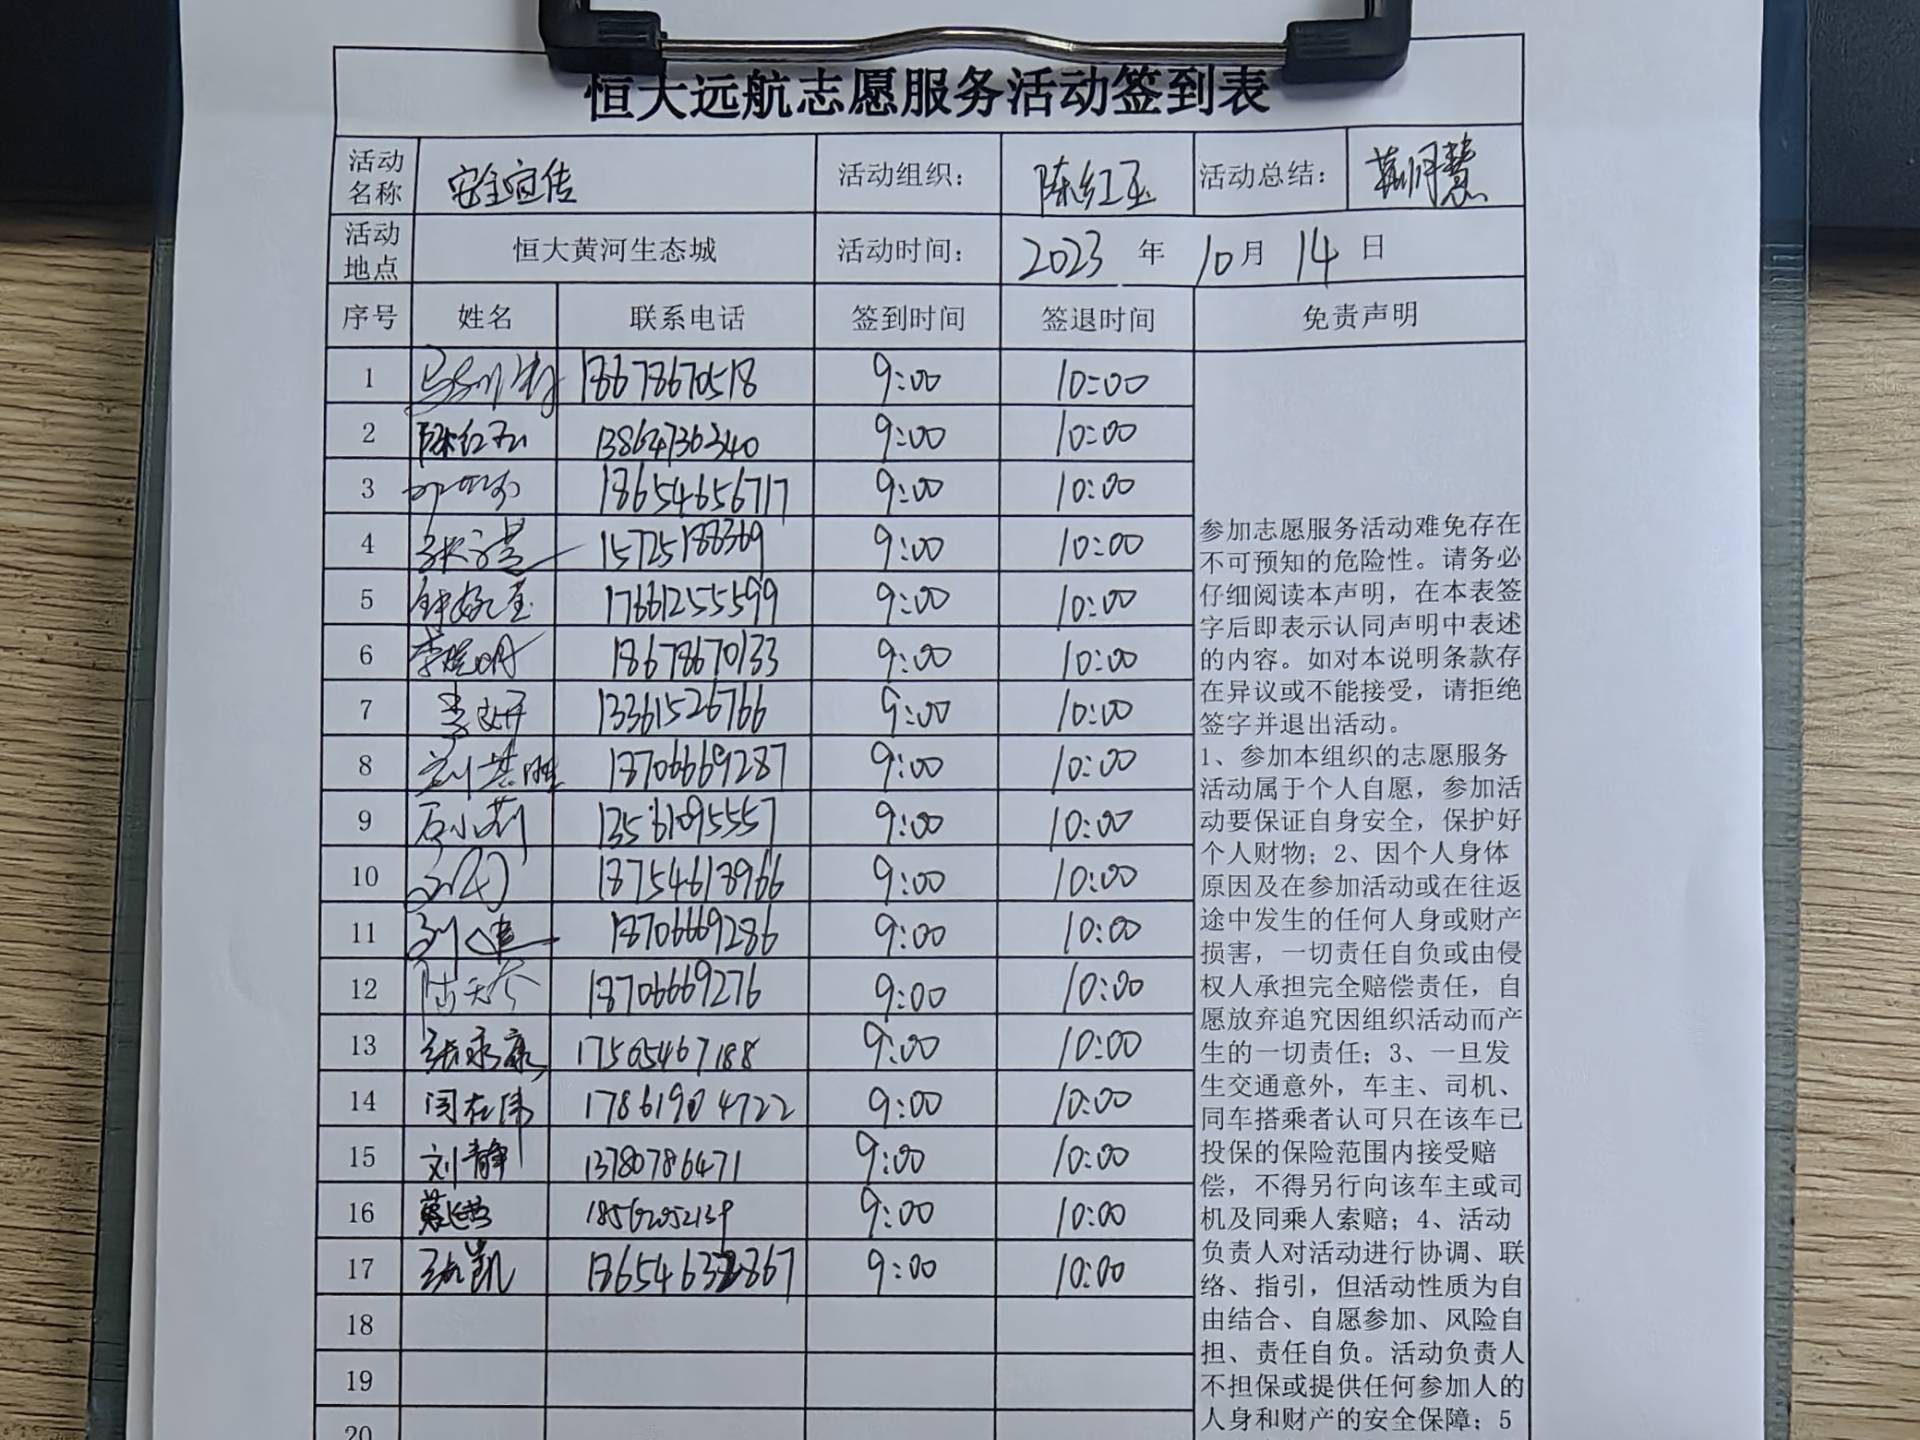 恒大远航志愿服务活动签到表
活动名称 安全宣传 活动组织： 陈红玉 活动总结：
活动地点 恒大黄河生态城 活动时间： 2023 年 10 月 14 日
序号 姓名 联系电话 签到时间 签退时间 免责声明
1 18678670518 9:00 10:00
2 陈红玉 13864736340 9:00 10:00
3 18654656717 9:00 10:00
4 15725188369 9:00 10:00
5 17661255599 9:00 10:00
6 李晓明 18678670133 9:00 10:00
7 李妍 13361526766 9:00 10:00
8 18706669287 9:00 10:00
9 石小莉 13561095557 9:00 10:00
10 18754618966 9:00 10:00
11 刘建 18706669286 9:00 10:00
12 18706669276 9:00 10:00
13 张永康 17505467188 9:00 10:00
14 闫在伟 17861904722 9:00 10:00
15 刘静 13780786471 9:00 10:00
16 18562052139 9:00 10:00
17 张凯 9:00 10:00
18
19
20
参加志愿服务活动难免存在
不可预知的危险性。请务必
仔细阅读本声明，在本表签
字后即表示认同声明中表述
的内容。如对本说明条款存
在异议或不能接受，请拒绝
签字并退出活动。
1、参加本组织的志愿服务
活动属于个人自愿，参加活
动要保证自身安全，保护好
个人财物；2、因个人身体
原因及在参加活动或在往返
途中发生的任何人身或财产
损害，一切责任自负或由侵
权人承担完全赔偿责任，自
愿放弃追究因组织活动而产
生的一切责任；3、一旦发
生交通意外，车主、司机、
同车搭乘者认可只在该车已
投保的保险范围内接受赔
偿，不得另行向该车主或司
机及同乘人索赔；4、活动
负责人对活动进行协调、联
络、指引，但活动性质为自
由结合、自愿参加、风险自
担、责任自负。活动负责人
不担保或提供任何参加人的
人身和财产的安全保障；5